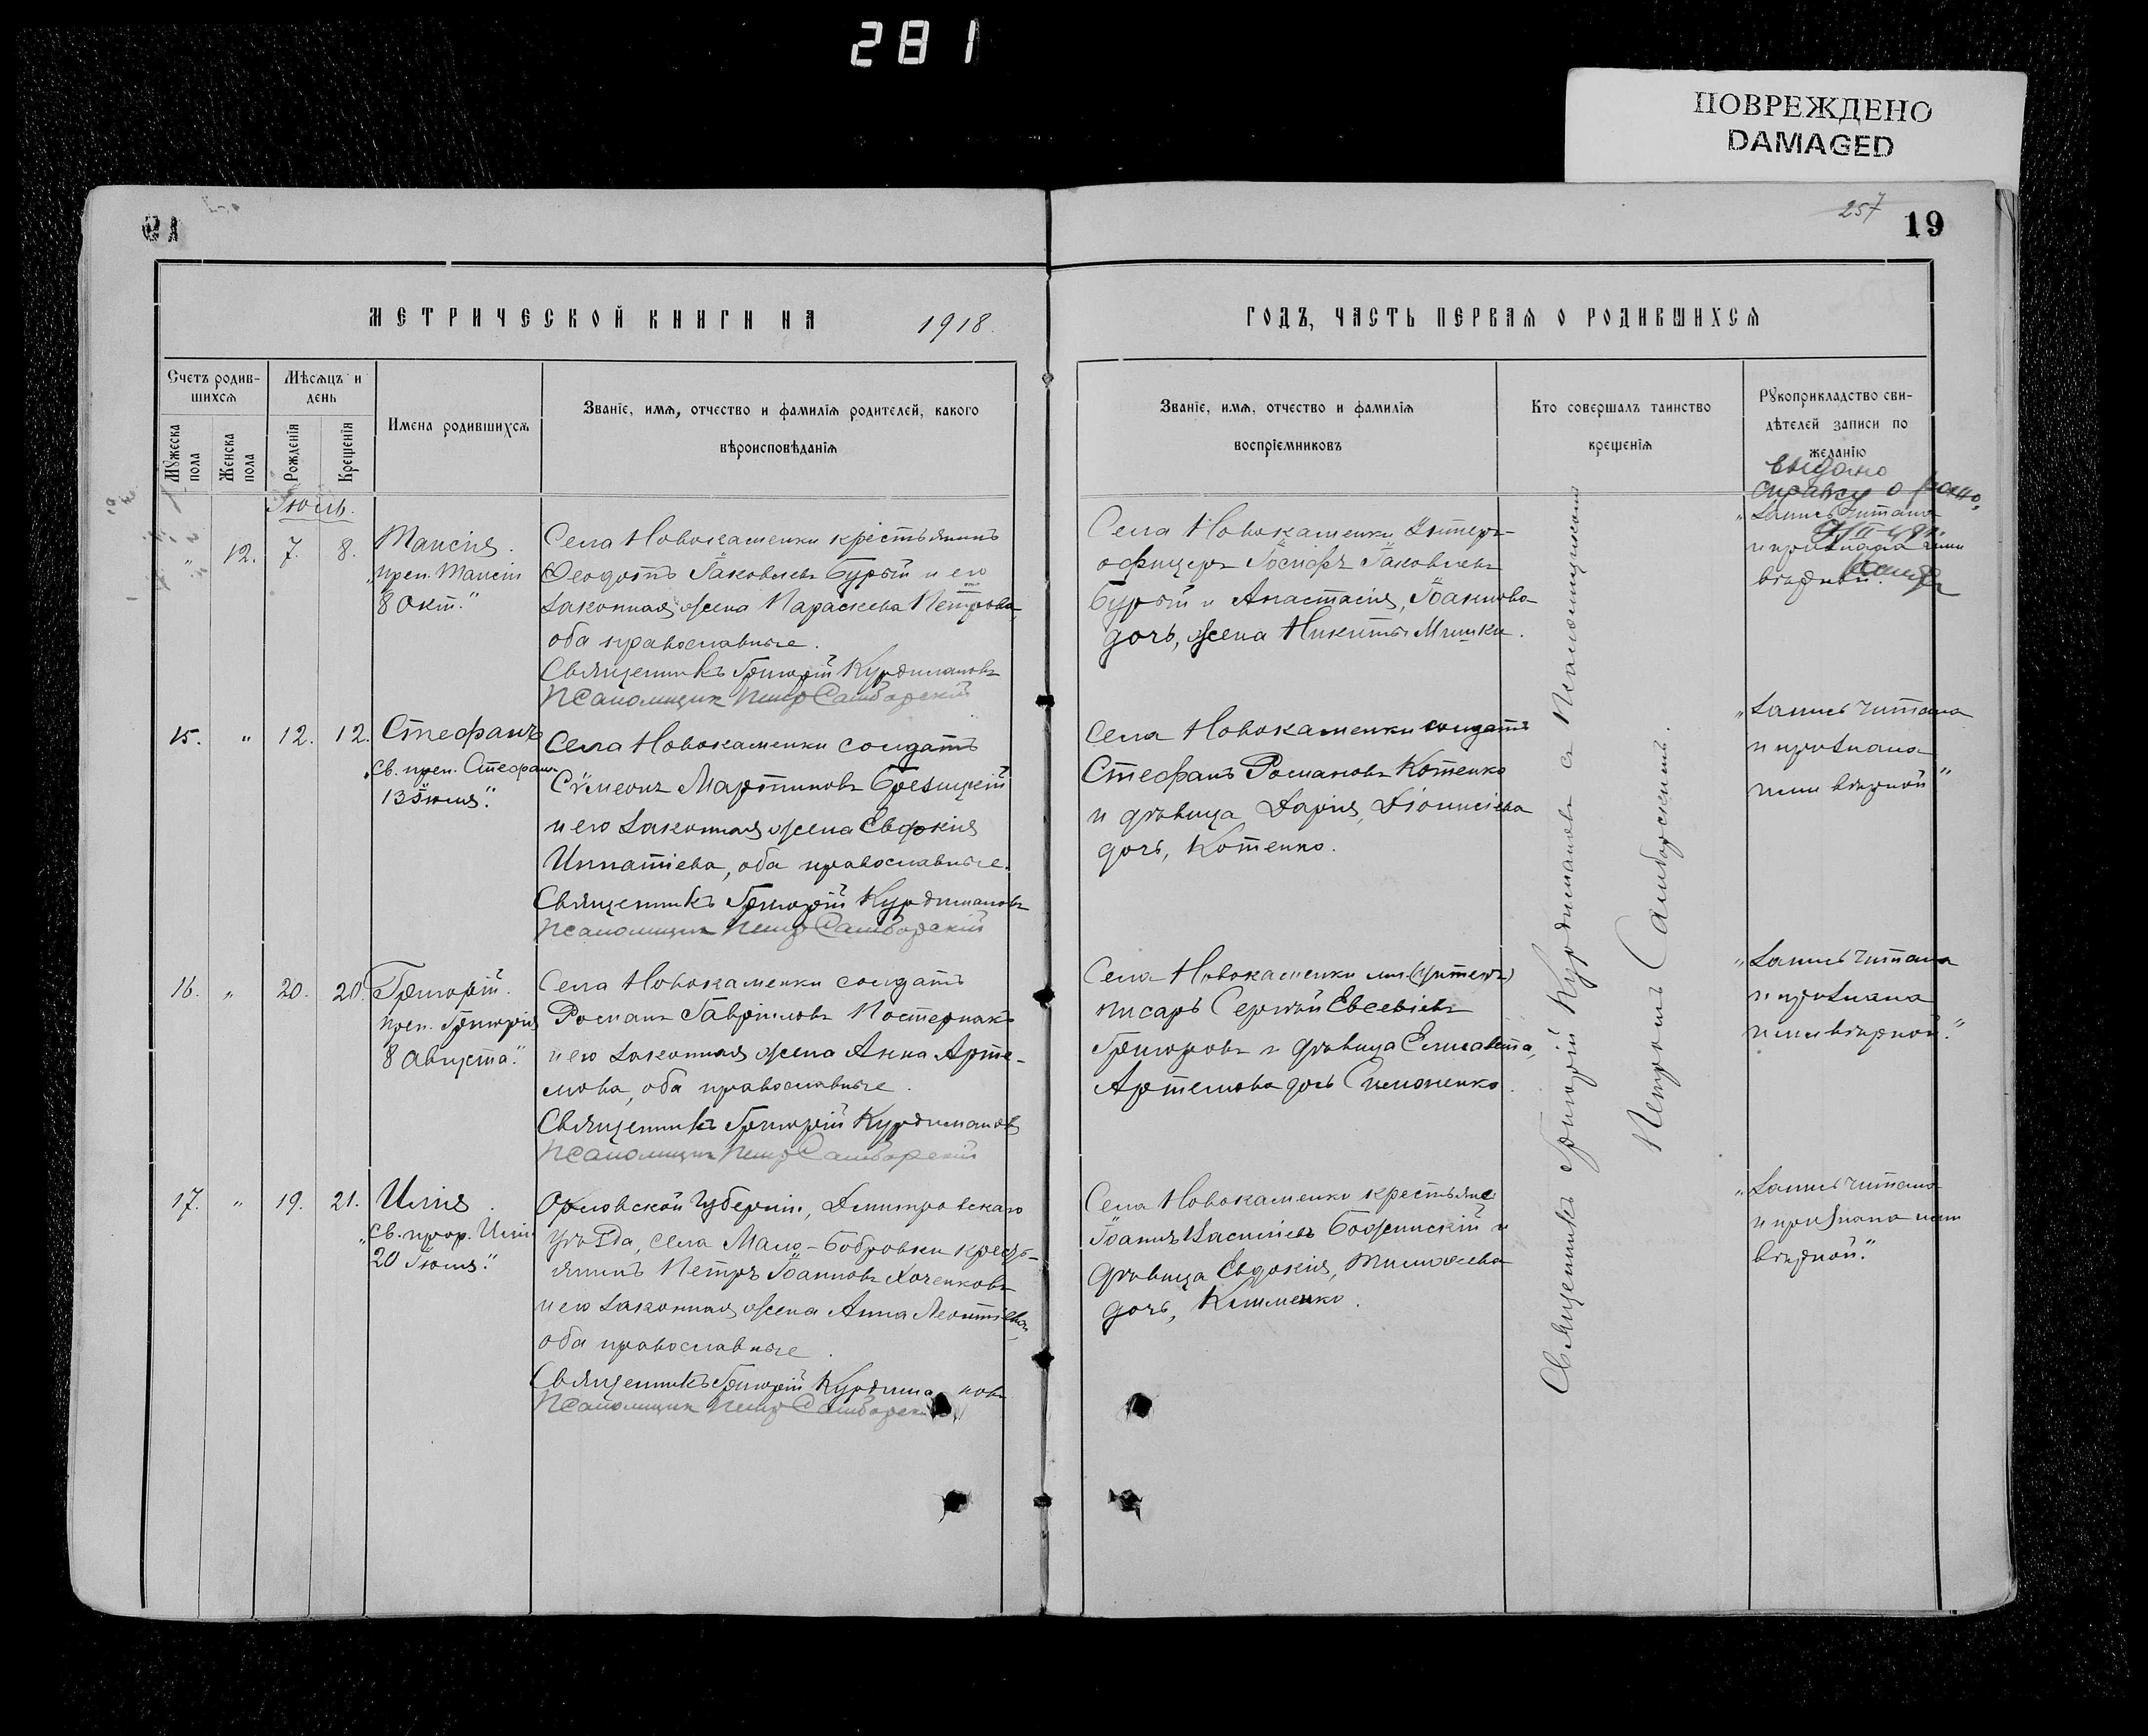 281
ПОВРЕЖДЕНО
DAMAGED
257
19
МЕТРИЧЕСКОЙ КНИГИ НА 1918.
ГОДЪ, ЧАСТЬ ПЕРВАЯ О РОДИВШИХСЯ
Счетъ родив-
шихся
Мужеска
пола
Женска
пола
Мѣсяцъ и
день
Рожденія
Крещенія
Имена родившихся
Званіе, имя, отчество и фамилія родителей, какого
вѣроисповѣданія
Званіе, имя, отчество и фамилія
воспріемниковъ
Кто совершалъ таинство
крещенія
Рукоприкладство сви-
дѣтелей записи по
желанію
Іюль.
" 12. 7. 8.
Таисія.
"преп. Таисіи
8 Окт."
Села Новокаменки крестьянинъ
Ѳеодотъ Іаковлевъ Бурый и его
законная жена Параскева Петрова,
оба православные.
Священникъ Григорій Курдимановъ
Псаломщик Петр Самборскій
Села Новокаменки Унтеръ-
офицеръ Іосифъ Іаковлевъ
Бурый и Анастасія, Іоакимова
дочь, жена Никиты Мишки.
выдано
справку о
"Запись читана
и признана нами
вѣрной."
15. " 12. 12.
Стефанъ
"Св. преп. Стефана
13 Іюля."
Села Новокаменки солдатъ
Сѵмеонъ Мартиновъ Брезицкій
и его законная жена Евдокія
Игнатіева, оба православные.
Священникъ Григорій Курдимановъ
Псаломщик Петр Самборскій
Села Новокаменки солдатъ
Стефанъ Романовъ Котенко
и дѣвица Дарія, Діонисіева
дочь, Котенко.
"Запись читана
и признана
нами вѣрной"
16. " 20. 20.
Григорій.
преп. Григорія
8 Августа."
Села Новокаменки солдатъ
Романъ Гавріиловъ Постернакъ
и его законная жена Анна Арте-
мова, оба православные.
Священникъ Григорій Курдимановъ
Псаломщик Петр Самборскій
Села Новокаменки
писарь Сергѣй Евсевіевъ
Григоровъ и дѣвица Елисавета,
Артемова дочь Симоненко.
"Запись читана
и признана
нами вѣрной."
17. " 19. 21.
Илія.
"Св. прор. Иліи
20 Іюля."
Орловской Губерніи, Димитровскаго
уѣзда, села Мало-Бобровки кресть-
янинъ Петръ Іоанновъ Хоченковъ
и его законная жена Анна Леонтіева,
оба православные.
Священникъ Григорій Курдимановъ
Псаломщик Петр Самборскій
Села Новокаменки крестьяне
Іоаннъ Василіевъ Божинскій и
дѣвица Евдокія, Тимоѳеева
дочь, Клименко.
"Запись читана
и признана нами
вѣрной."
Священникъ Григорій Курдимановъ съ Псаломщикомъ
Петромъ Самборскимъ.